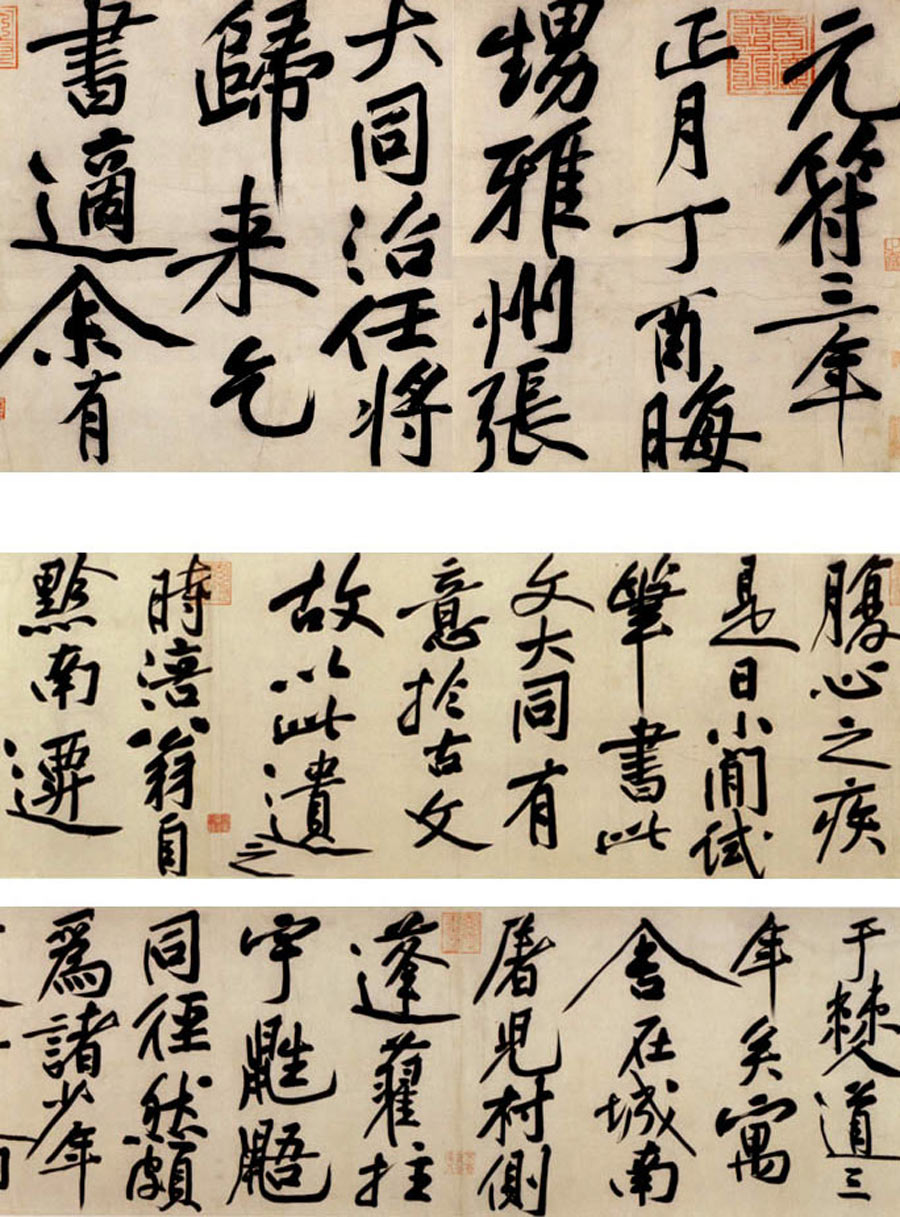 元符三年
正月丁酉晦
甥雅州張
大同治任将
歸来乞
書適余有
腹心之疾
是日小閒試
筆書此
文大同有
意於古文
故以此遺之
時涪翁自
黔南遷
于僰道三
年矣寓
舍在城南
屠児村側
蓬藋拄
宇鼪鼯
同徑然頗
爲諸少年